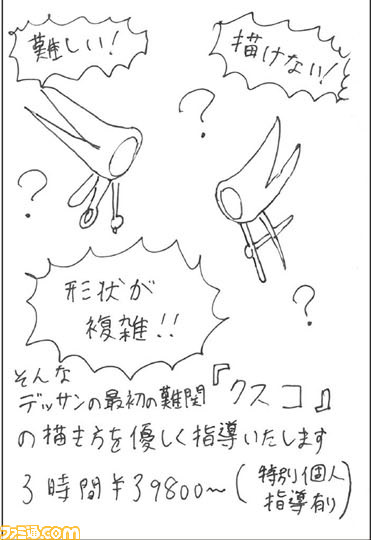 難しい!
描けない!
?
?
?
形状が
複雑!!
そんな
デッサンの最初の難関『クスコ』
の描き方を優しく指導いたします
3時間¥39800〜(特別個人
指導有り)
ファミ通.com